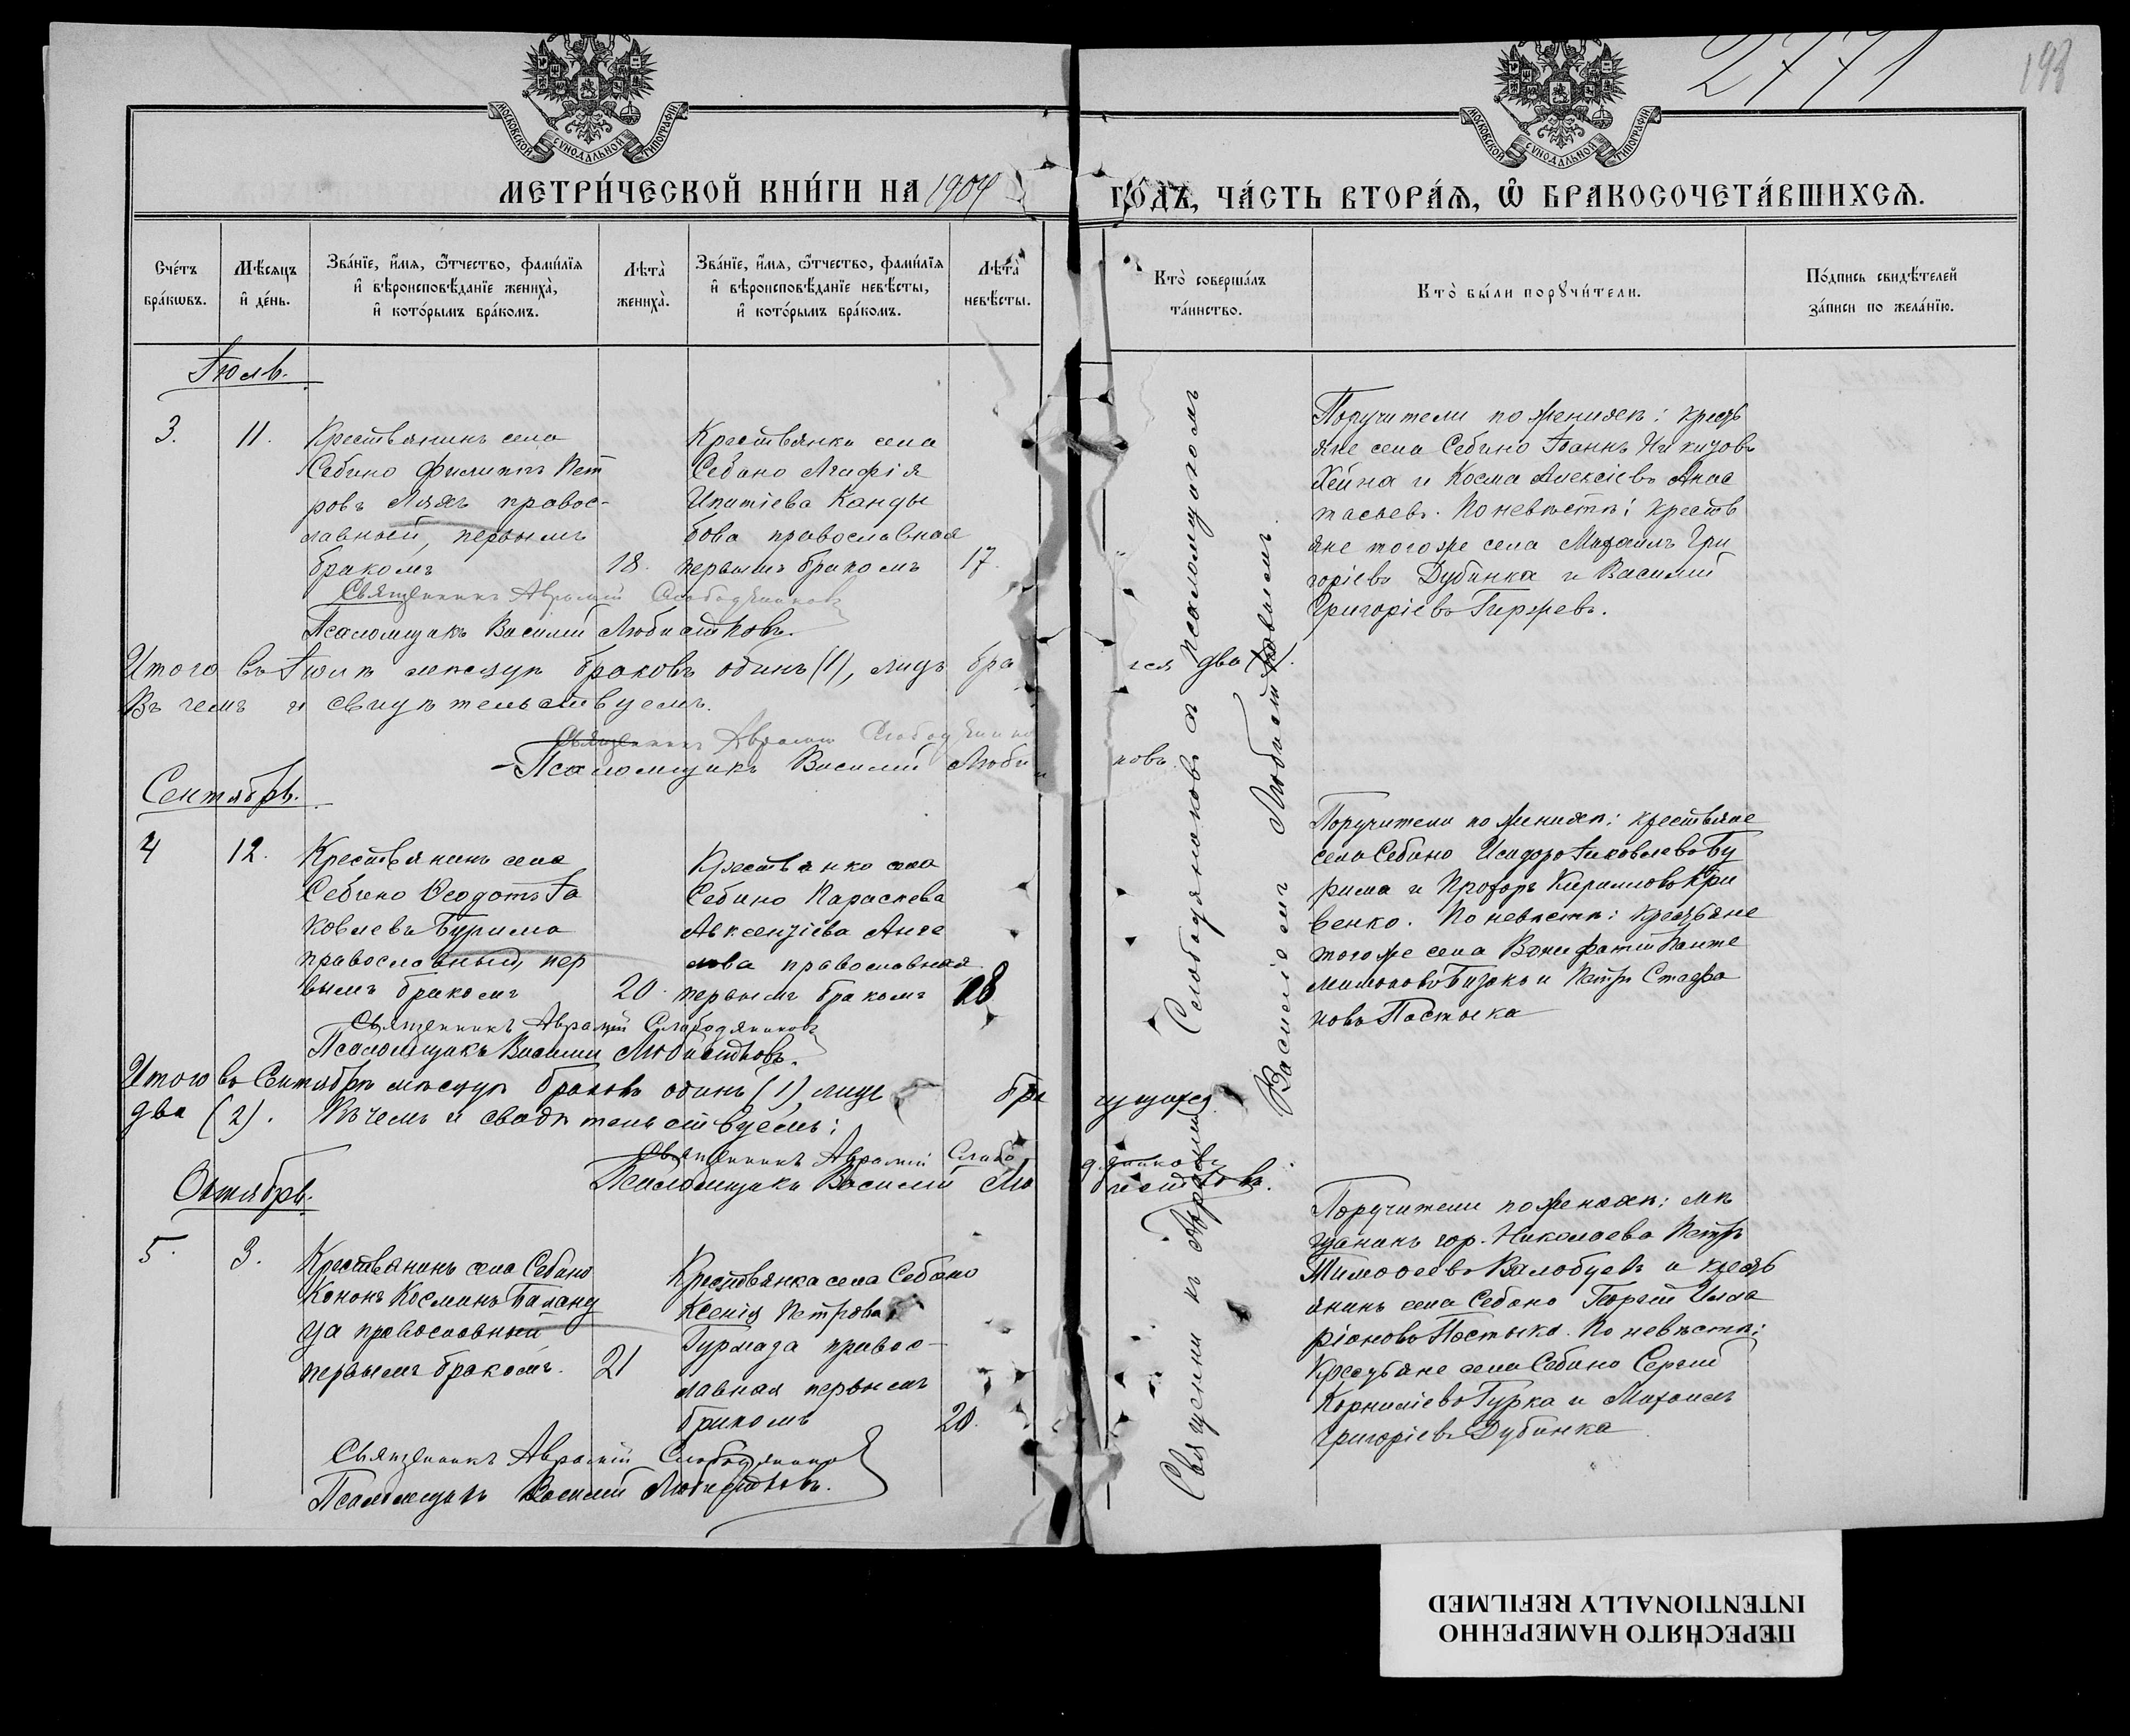 2771
198
МОСКОВСКОЙ СѴНОДАЛЬНОЙ ТИПОГРАФІИ
МОСКОВСКОЙ СѴНОДАЛЬНОЙ ТИПОГРАФІИ
МЕТРИ́ЧЕСКОЙ КНИ́ГИ НА 1904 ГО́ДЪ, ЧА́СТЬ ВТОРА́Я, Ѽ БРАКОСОЧЕТА́ВШИХСЯ.
Сче́тъ бра́кωвъ.
Мѣ́сяцъ и҆ де́нь.
Зва́нїе, и҆́мя, ѻ҆́тчество, фами́лїя и҆ вѣроисповѣ́данїе жениха̀, и҆ кото́рымъ бра́комъ.
Лѣта̀ жениха̀.
Зва́нїе, и҆́мя, ѻ҆́тчество, фами́лїя и҆ вѣроисповѣ́данїе невѣ́сты, и҆ кото́рымъ бра́комъ.
Лѣта̀ невѣ́сты.
Кто̀ соверша́лъ та́инство.
Кто̀ бы́ли порꙋчи́тели.
По́дпись свидѣ́телей за́писи по жела́нїю.
Іюль.
3.
11.
Крестьянинъ села
Себино Филиппъ Пет
ровъ Ляхъ правос-
лавный, первымъ
бракомъ
18.
Крестьянка села
Себино Агафія
Ипатіева Канды
бова православная
первымъ бракомъ
17.
Поручители по женихѣ: кресть
яне села Себино Іоаннъ
и Косма Алексіевъ Анас
тасьевъ. По невѣстѣ: крестья
яне того же села Михаилъ Гри
горіевъ Дубинка и Василій
Григоріевъ Гиржевъ.
Священникъ Аврамій Слободяниковъ
Псаломщикъ Василій Любистковъ.
Итого въ Іюлѣ мѣсяцѣ браковъ одинъ (1), лицъ бра
гся два (2).
Въ чемъ и свидѣтельствуемъ.
Священникъ Аврамій Слободянико
Псаломщикъ Василій Люби
ковъ.
Сентябрь.
4
12.
Крестьянинъ села
Себино Ѳеодотъ Іа
ковлевъ Бурима
православный, пер
вымъ бракомъ
20.
Крестьянка села
Себино Параскева
Авксентіева Анге
лова православная
первымъ бракомъ
18
Поручители по женихѣ: крестьяне
села Себино Исидоръ Іаковлевъ Бу
рима и Прохоръ Кирилловъ Кри
венко. По невѣстѣ: крестьяне
того же села Вонифатій Панте
лимоновъ и Петръ Стефа
новъ Постыка
Священникъ Аврамій Слободяниковъ
Псаломщикъ Василій Любистковъ.
Итого въ Сентябрѣ мѣсяцѣ браковъ одинъ (1), лицъ бра
чущихся
два (2). Въ чемъ и свидѣтельствуемъ:
Священникъ Аврамій Слабо
дяниковъ
Псаломщикъ Василій Лю
бистковъ.
Октябрь.
5.
3.
Крестьянинъ села Себино
Кононъ Косминъ Баланд
ца православный
первымъ бракомъ.
21
Крестьянка села Себино
Ксенія Петрова
Гурмаза правос-
лавная первымъ
бракомъ
20.
Поручители по женихѣ: мѣ
щанинъ гор. Николаева Петръ
Тимоѳеевъ и кресть
янинъ села Себино Георгій Илла
ріоновъ Постыка. По невѣстѣ:
Крестьяне села Себино Сергій
Корниліевъ Гурка и Михаилъ
Григоріевъ Дубинка
Священникъ Аврамій Слободянико
Псаломщикъ Василій Любистковъ.
Священникъ Аврамій Слободяниковъ съ псаломщикомъ
Василіемъ Любистковымъ.
ПЕРЕСНЯТО НАМЕРЕННО
INTENTIONALLY REFILMED